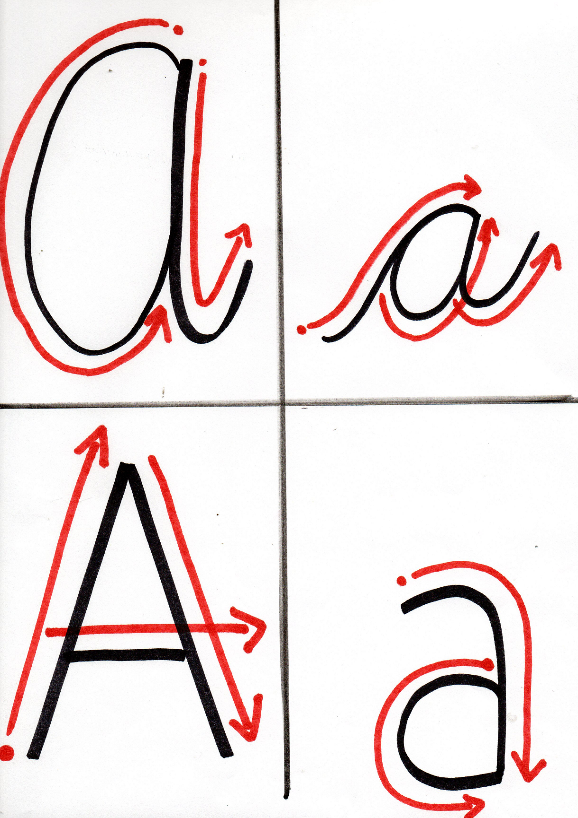 A a
A a